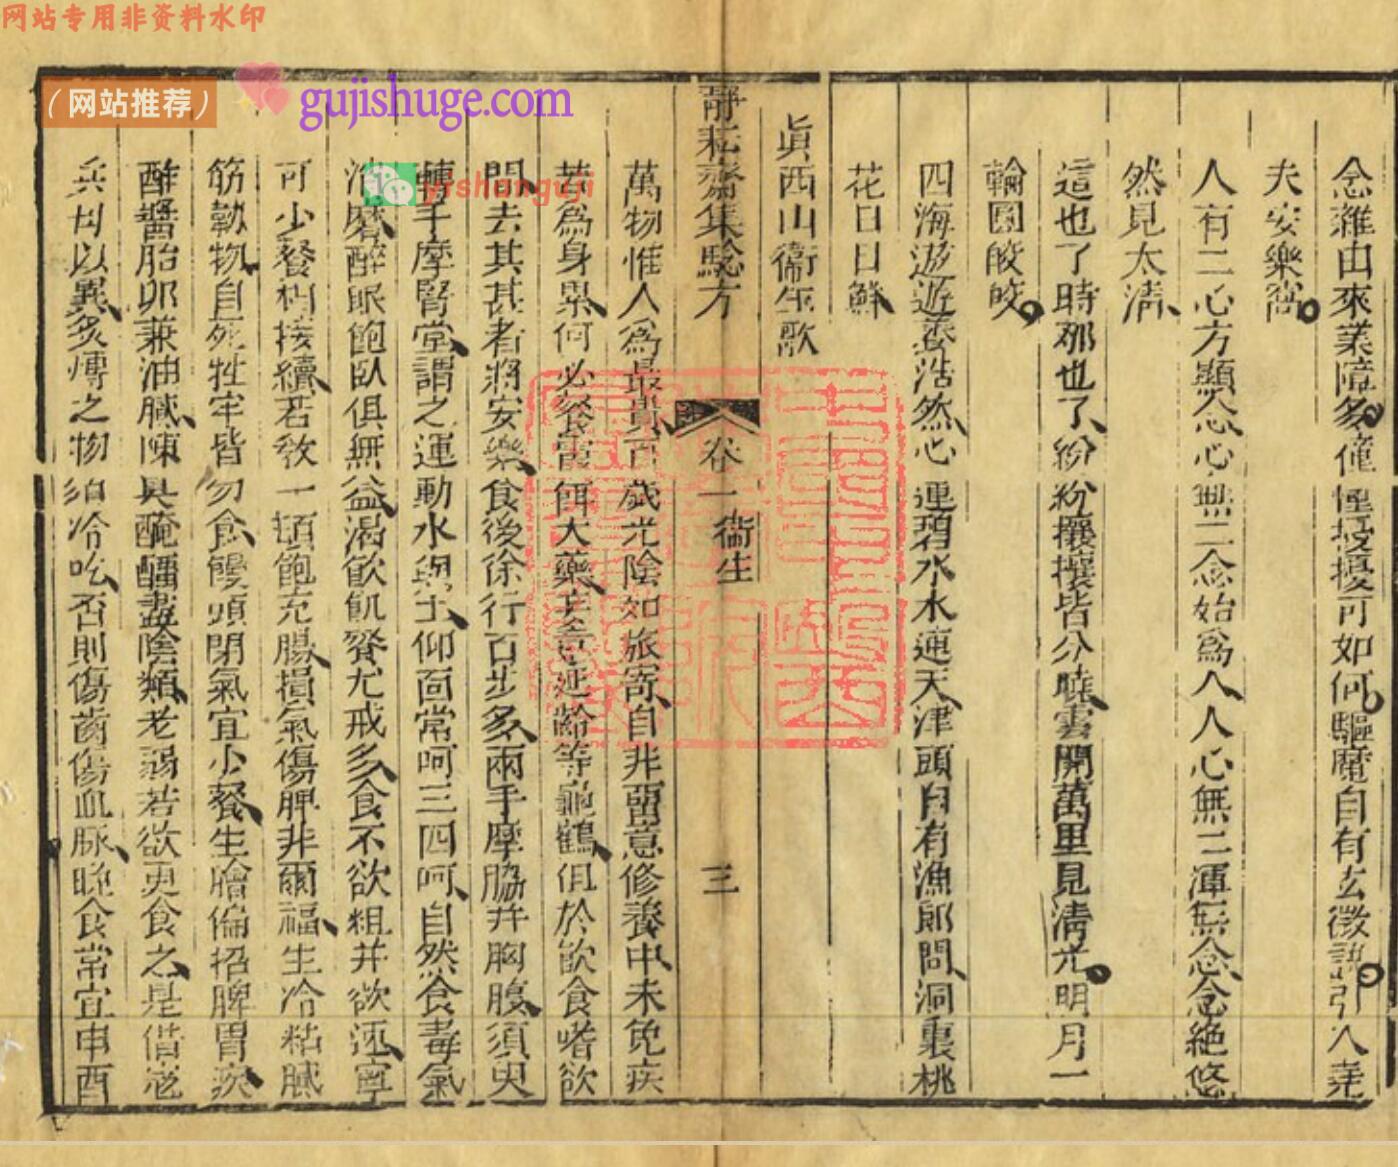 网站专用非资料水印
（网站推荐）
gujishuge.com
yishanguji
念雜由來業障多憧憧擾擾可如何驅魔自有玄微訣引入堯
夫安樂窩
人有二心方顯念心無二念始爲人人心無二渾無念念絶悠
然見太清
這也了時那也了紛紛攘攘皆分曉雲開萬里見清光明月一
輪圓皎皎
四海遨遊養浩然心連碧水水連天津頭自有漁郎問洞裏桃
花日日鮮
眞西山衞生歌
靜耘齋集驗方
卷一衞生
三
萬物惟人爲最貴百歲光陰如旅寄自非留意修養中未免疾
苦爲身累何必餐霞餌大藥妄意延齡等龜鶴但於飮食嗜欲
間去其甚者將安樂食後徐行百步多兩手摩脇并胸腹須臾
轉手摩腎堂謂之運動水與土仰面常呵三四呵自然食毒氣
消磨醉眠飽臥俱無益渴飮飢餐尤戒多食不欲粗并欲速寧
可少餐相接續若敎一頓飽充腸損氣傷脾非爾福生冷粘膩
筋韌物自死牲牢皆勿食饅頭閉氣宜少餐生膾偏招脾胃疾
酢醬胎卵兼油膩陳臭醃醯盡陰類老弱若欲更食之是借寇
兵何以異炙煿之物須冷吃否則傷齒傷血脉晚食常宜申酉